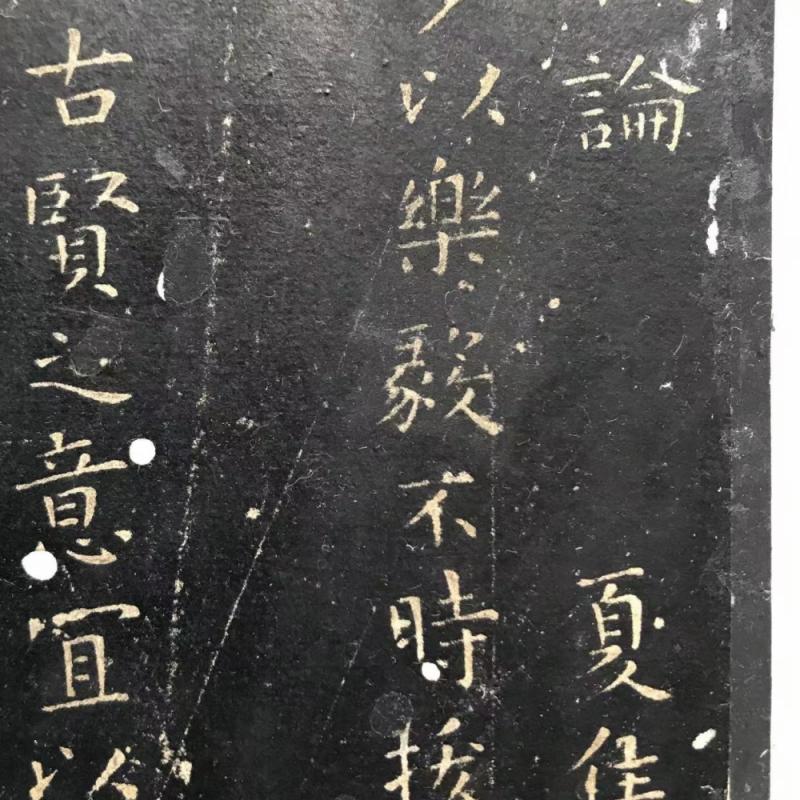 論 夏侯
以樂毅不時拔
古賢之意宜以